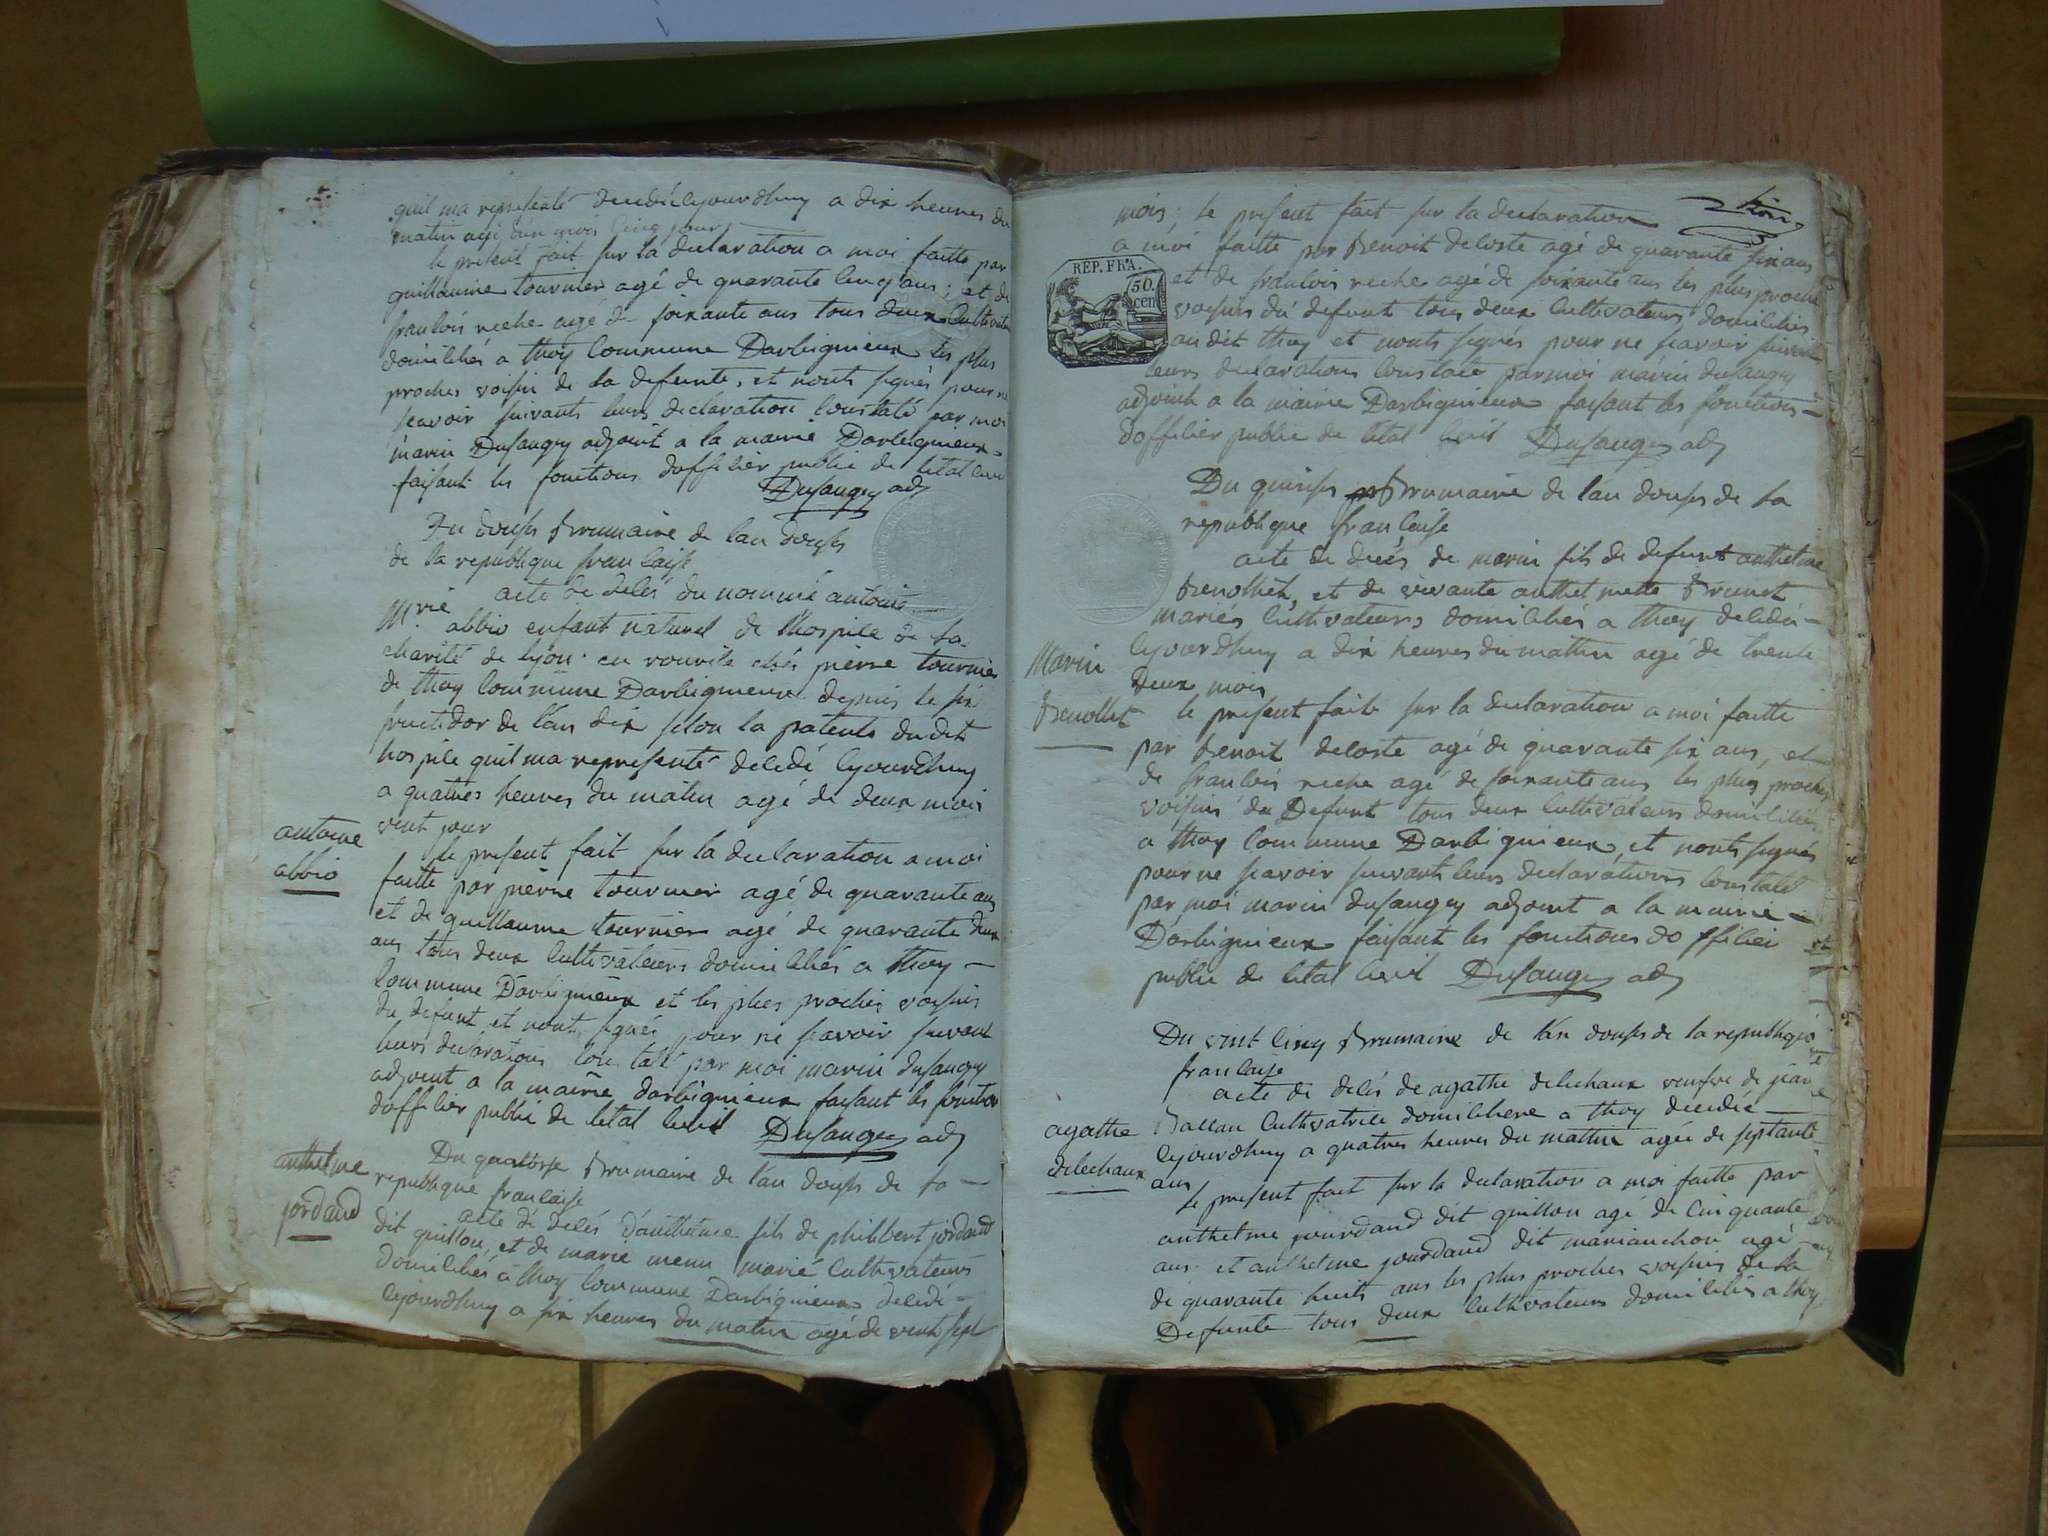 quil ma representé decedé cejourdhuy a dix heures du
matin agé dun mois cinq jour
le present fait sur la declaration a moi faitte par
guillaume tournier agé de quarante cinq ans; et de
francois reche agé de soixante ans tous deux Cultivateu
domiciliés a thoy Commune Darbignieux les plus
proches voisin de la defunte, et nonts signés pour ne
scavoir suivants leurs declaration Constaté par moi
marin Dusaugey adjoint a la mairie Darbignieux
faisant les fonctions dofficier public de letat civi
Dusaugey adj
Du douse Brumaire de lan douse
de la republique francaise
acte de décés du nommé antoine
M.rie abbio enfant naturel de lhospice de la
charité de lyon en nourice chés pierre tournier
de thoy Commune Darbignieux depuis le six
fructidor de lan dix selon la patente dudit
hospice quil ma representé decedé cejourdhuy
a quatres heures du matin agé de deux mois
vint jour
antoine
abbio
le present fait sur la declaration a moi
faitte par pierre tournier agé de quarante ans
et de guillaume tournier agé de quarante deux
ans tous deux Cultivateurs domiciliés a thoy
Commune Darbignieux et les plus proches voisins
du defunt et nonts signés pour ne scavoir suivant
leurs declarations constaté par moi marin dusaugey
adjoint a la mairie darbignieux faisant les fonction
dofficier public de letat civil Dusaugey adj
anthelme
jordand
Du quatorse Brumaire de lan douse de la
republique francaise
acte de décés Danthelme fils de philibert jordand
dit guillon, et de marie menu marié Cultivateurs
domiciliés a thoy Commune Darbignieux decedé
cejourdhuy a six heures du matin agé de vent sept
mois; le present fait sur la declaration
a moi faitte par Benoit deloste agé de quarante six ans
REP. FRA.
50.
cen
et de francois reche agé de soixante ans les plus proche
voisins du defunt tous deux Cultivateurs domiciliés
au dit thoy et nonts signés pour ne scavoir suivant
leurs declarations Constaté par moi marin dusaugey
adjoint a la mairie Darbignieux faisant les fonctions
dofficier public de letat Civil Dusaugey adj
Du quinse Brumaire de lan douse de la
republique francaise
acte de decés de marin fils de defunt anthelme
Benollet, et de vivante anthelmette Brunet
mariés Cultivateurs domiciliés a thoy decedé
cejourdhuy a dix heures du mattin agé de trente
deux mois
Marin
Benollet
le present fait sur la declaration a moi faitte
par Benoit deloste agé de quarante six ans, et
de francois reche agé de soixante ans les plus proches
voisins du Defunt tous deux Cultivateurs domicilié
a thoy Commune Darbignieux, et nonts signés
pour ne scavoir suivants leurs declarations Constaté
par moi marin dusaugey adjoint a la mairie
Darbignieux faisant les fonctions dofficier
public de letat Civil Dusaugey adj
Du vint Cinq Brumaire de lan douse de la republique
francaise
acte de décés de agathe delechaux veufve de jean
Ballan Cultivatrice domiciliere a thoy decedée
cejourdhuy a quatres heures du mattin agée de septante
ans
agathe
delechaux
le present fait sur la declaration a moi faitte par
anthelme jourdand dit guillon agé de Cinquante
ans et anthelme jourdand dit marianchon agé
de quarante huits ans les plus proches voisins de la
Defunte tous deux Cultivateurs domiciliés a thoy